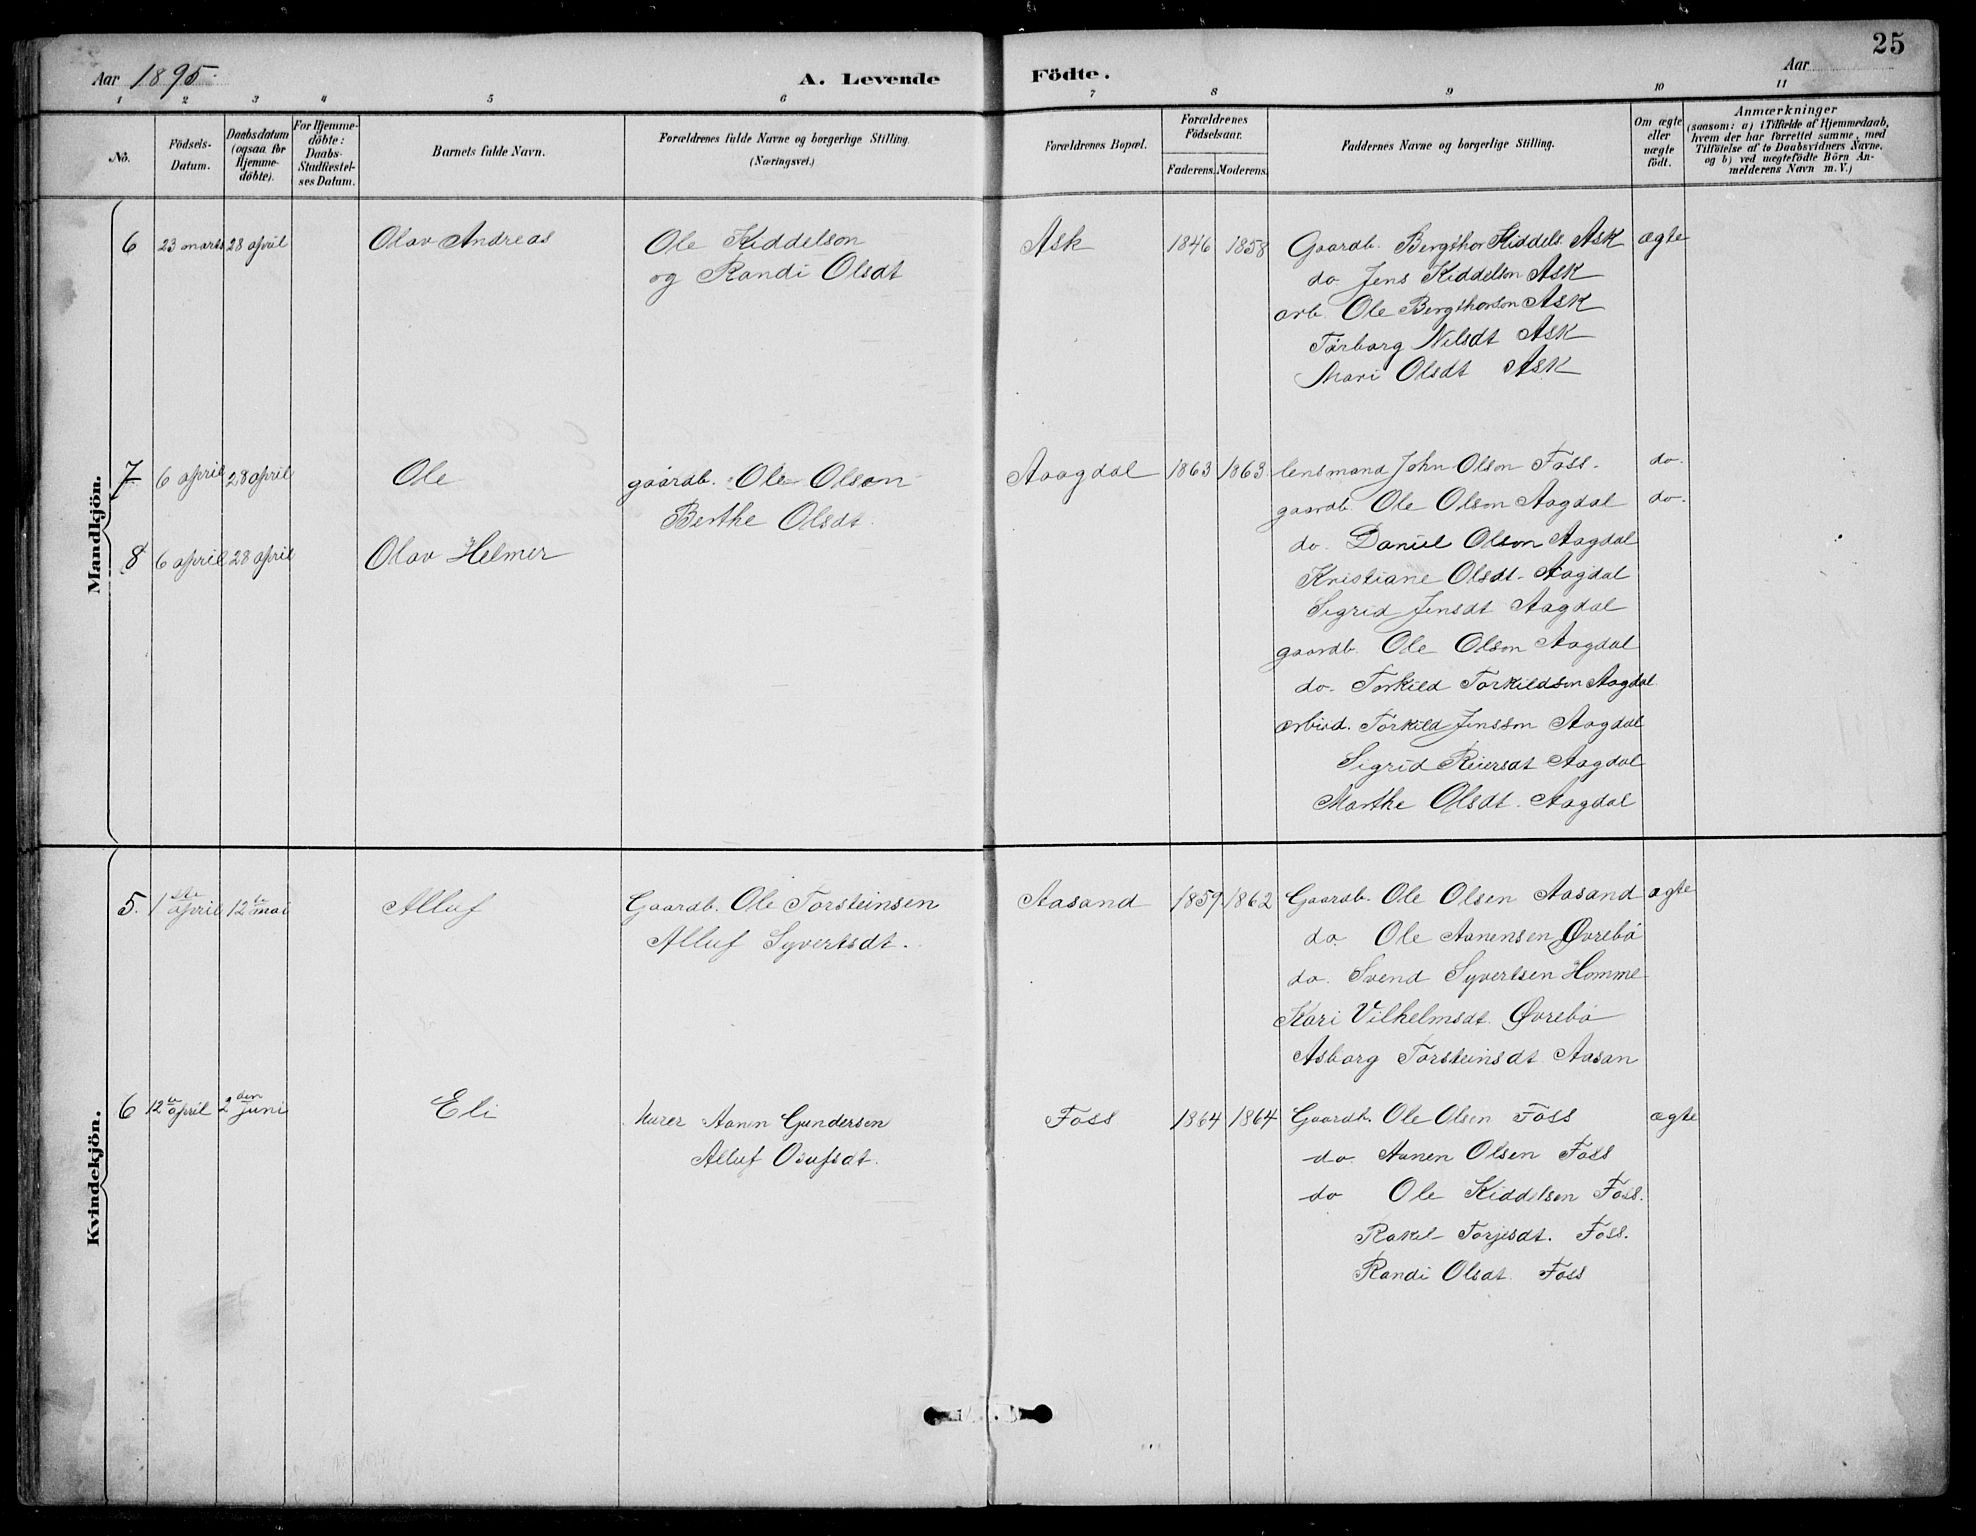 25
Aar 1895.
A. Levende Födte.
Aar
1 2 3 4 5 6 7 8 9 10 11
No.
Födsels-Datum.
Daabsdatum (ogsaa for Hjemmedöbte).
For Hjemmedöbte: Daabs-Stadfæstelses Datum.
Barnets fulde Navn.
Forældrenes fulde Navne og borgerlige Stilling.
(Næringsvei.)
Forældrenes Bopæl.
Forældrenes Födselsaar.
Faderens. Moderens.
Faddernes Navne og borgerlige Stilling.
Om ægte eller uægte födt.
Anmærkninger
(saasom: a) i Tilfælde af Hjemmedaab,
hvem der har forrettet samme, med
Tilföielse af to Daabsvidners Navne,
og b) ved uægtefödte Börn An-
melderens Navn m. V.)
Mandkjön.
6 23 marts 28 april Olav Andreas Ole Kiddelson Ask 1846 1858 Gaardb. Bergthor Kiddels. Ask ægte
og Randi Olsdt do Jens Kiddelson Ask
arb. Ole Bergthorson Ask
Torborg Nilsdt Ask
Mari Olsdt Ask
7 6 april 28 april Ole gaardb. Ole Olson Aagdal 1863 1863 lensmand John Olson Foss. do.
Berthe Olsdt. gaardb Ole Olson Aagdal do.
8 6 april 28 april Olav Helmer do. Daniel Olson Aagdal
Kristiane Olsdt. Aagdal
Sigrid Jensdt Aagdal
gaardb. Ole Olson Aagdal
do. Torkild Torkildson Aagdal
arbeid. Torkild Jensson Aagdal
Sigrid Reiersdt Aagdal
Marthe Olsdt. Aagdal
Kvindekjön.
5. 1ste april 12te mai Alluf Gaardb. Ole Torsteinsen Aasand 1859 1862 Gaardb. Ole Olsen Aasand ægte
Alluf Syvertsdt. do. Ole Aanensen Øvrebø
do. Svend Syvertsen Homme
Kari Vilhelmsdt. Øvrebø
Asborg Torsteinsdt Aasan
6 12te april 2den juni Eli Murer Aanen Gundersen Foss 1864 1864 Gaardb. Ole Olsen Foss ægte
Alluf Osufsdt. do. Aanen Olsen Foss
do Ole Kiddelsen Foss.
Rakel Torjesdt. Foss.
Randi Olsdt. Foss